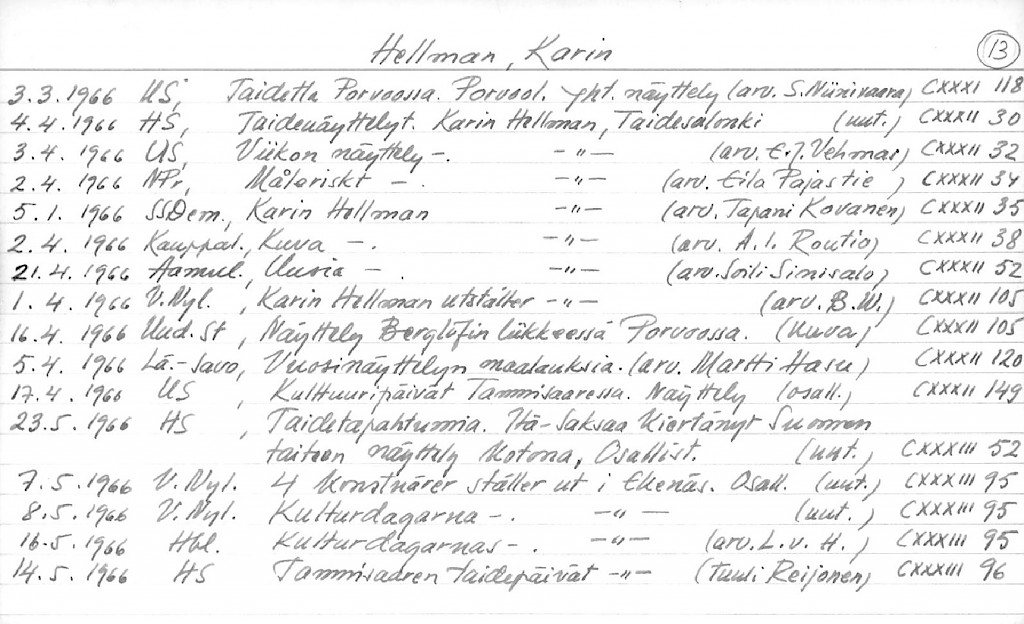 Hellman, Karin
13
3.3.1966 US, Taidetta Porvoossa. Porvool. yht. näyttely (arv. S. Niinivaara) CXXXI 118
4.4.1966 HS, Taidenäyttelyt. Karin Hellman, Taidesalonki (uut.) CXXXII 30
3.4.1966 US, Viikon näyttely -. -"- (arv. E.J. Vehmas) CXXXII 32
2.4.1966 NPr, Måleriskt -. -"- (arv. Eila Pajastie) CXXXII 34
5.1.1966 SSDem., Karin Hellman -"- (arv. Tapani Kovanen) CXXXII 35
2.4.1966 Kauppal., Kuva -. -"- (arv. A.I. Routio) CXXXII 38
21.4.1966 Aamul., Uusia -. -"- (arv. Soili Sinisalo) CXXXII 52
1.4.1966 V. Nyl., Karin Hellman utställer -"- (arv. B.W.) CXXXII 105
16.4.1966 Uud. St, Näyttely Berglöfin liikkeessä Porvoossa. (kuva) CXXXII 105
5.4.1966 Lä.-Savo, Vuosinäyttelyn maalauksia. (arv. Martti Hasu) CXXXII 120
17.4.1966 US, Kulttuuripäivät Tammisaaressa. Näyttely (osall.) CXXXII 149
23.5.1966 HS, Taidetapahtumia. Itä-Saksaa kiertänyt Suomen
taiteen näyttely kotona, Osallist. (uut.) CXXXIII 52
7.5.1966 V. Nyl. 4 konstnärer ställer ut i Ekenäs. Osall. (uut.) CXXXIII 95
8.5.1966 V. Nyl. Kulturdagarna -. -"- (uut.) CXXXIII 95
16.5.1966 Hbl. Kulturdagarnas -. -"- (arv. L.v. H.) CXXXIII 95
14.5.1966 HS Tammisaaren taidepäivät -"- (Tuuli Reijonen) CXXXIII 96